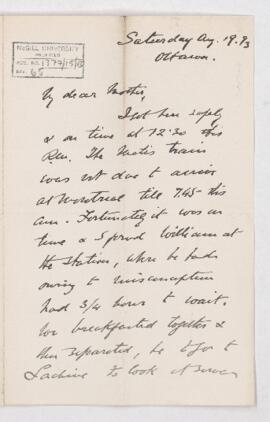 McGILL UNIVERSITY
ARCHIVES
ACC. NO. 1377/15/15
REF. 65
Saturday Aug. 19. 93
Ottawa.
My dear Mother,
I got here safely
& on time at 12:30 this
p.m. The train
was not due to arrive
at Montreal till 7.45 this
am. Fortunately it was on
time & I found William at
the station, where he had
owing to misconception
had 3/4 hours to wait.
We breakfasted together &
then separated, he to go to
Lachine to look at